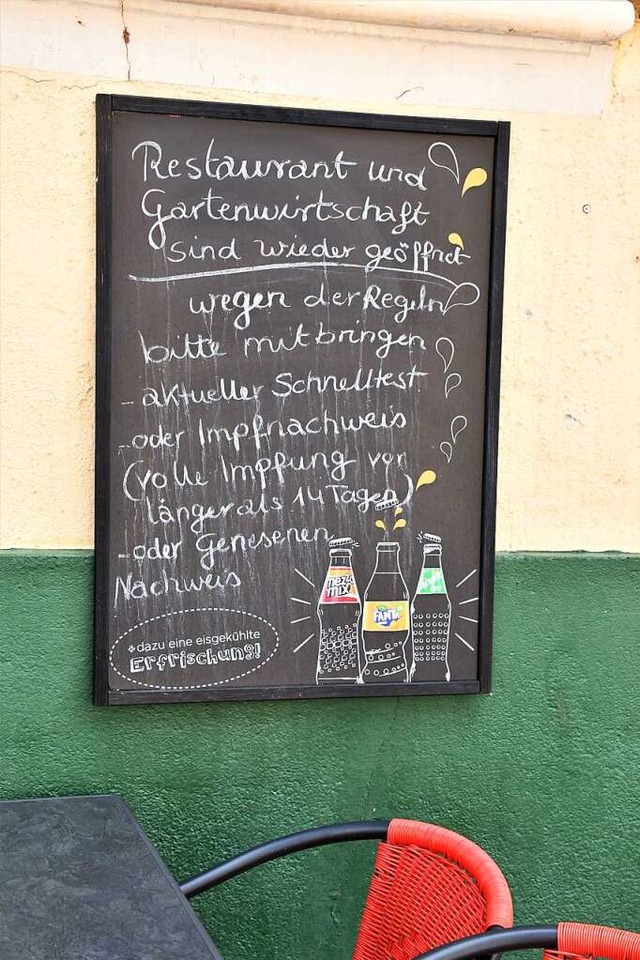 Restaurant und
Gartenwirtschaft
sind wieder geöffnet
wegen der Regeln
bitte mitbringen
- aktueller Schnelltest
- oder Impfnachweis
(volle Impfung vor
länger als 14 Tagen)
- oder Genesenen
Nachweis
dazu eine eisgekühlte
Erfrischung!
mezzo mix
FANTA